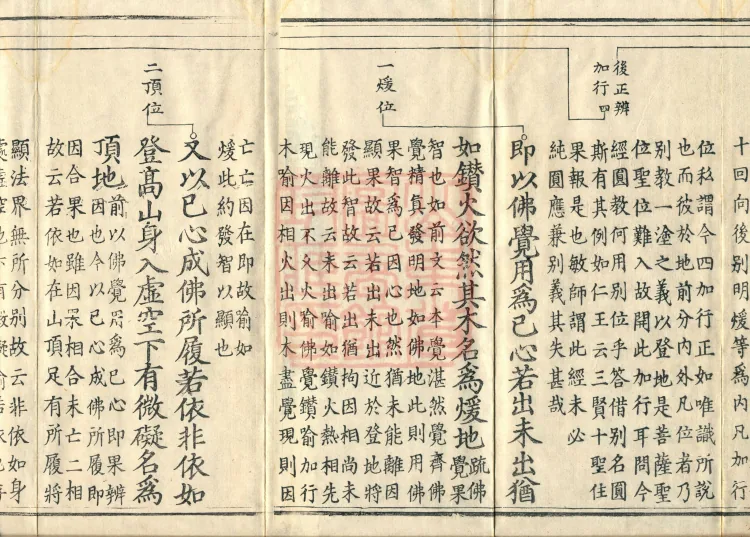 十回向後別明煖等為內凡加行
位私謂今四加行正如唯識所說
也而彼於地前分內外凡位者乃
別教一塗之義以登地是菩薩聖
位聖位難入故開此加行耳問今
經圓教何用別位乎答借別名圓
斯有其例如仁王云三賢十聖住
果報是也敏師謂此經未必
純圓應兼別義其失甚哉
後正辨
加行四
一煖位
即以佛覺用為己心若出未出猶
如鑽火欲然其木名為煖地
疏佛
覺果
智也如前文云本覺湛然覺齊佛
覺精真發明地如佛地此則用佛
果智為已因心也然猶未能離因
顯果故云若出未出近於登地將
發此智故云若出猶拘因相尚未
能離故云未出喻如鑽火熱相先
現火出不久火喻佛覺鑽喻加行
木喻因相火出則木盡覺現則因
亡亡因在即故喻如
煖此約發智以顯也
二頂位
又以已心成佛所履若依非依如
登高山身入虛空下有微礙名為
頂地
前以佛覺用為已心即果辨
因也今以已心成佛所履即
因合果也雖因果相合未亡二相
故云若依如在山頂足有所履將
顯法界無所分別故云非依如身